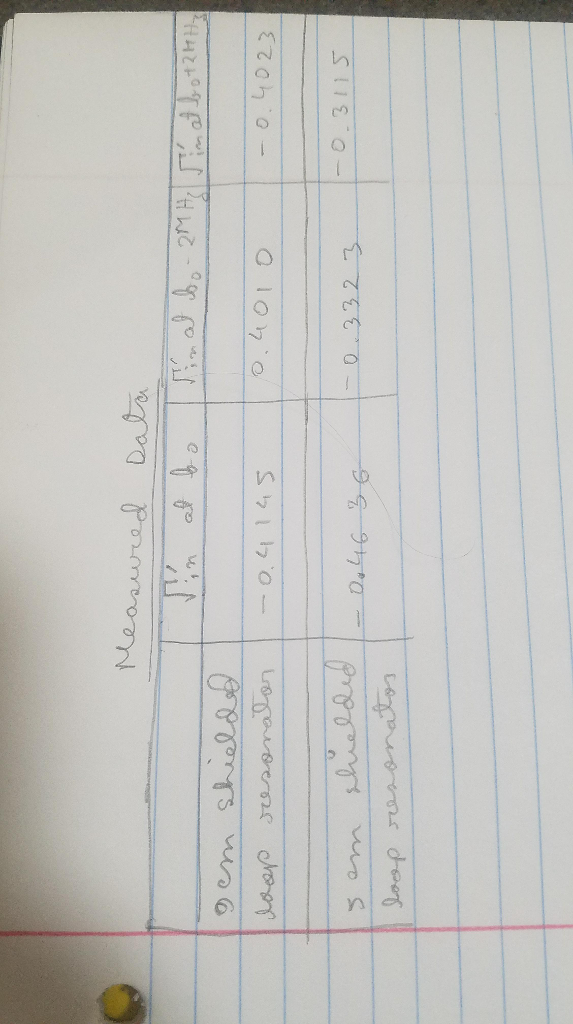 Measured Data
Γin at b0
Γin at b0 - 2MHz
Γin at b0+2MHz
9cm shielded
loop resonator
-0.4145
0.4010
-0.4023
5 cm shielded
loop resonator
-0.4636
-0.3323
-0.3115